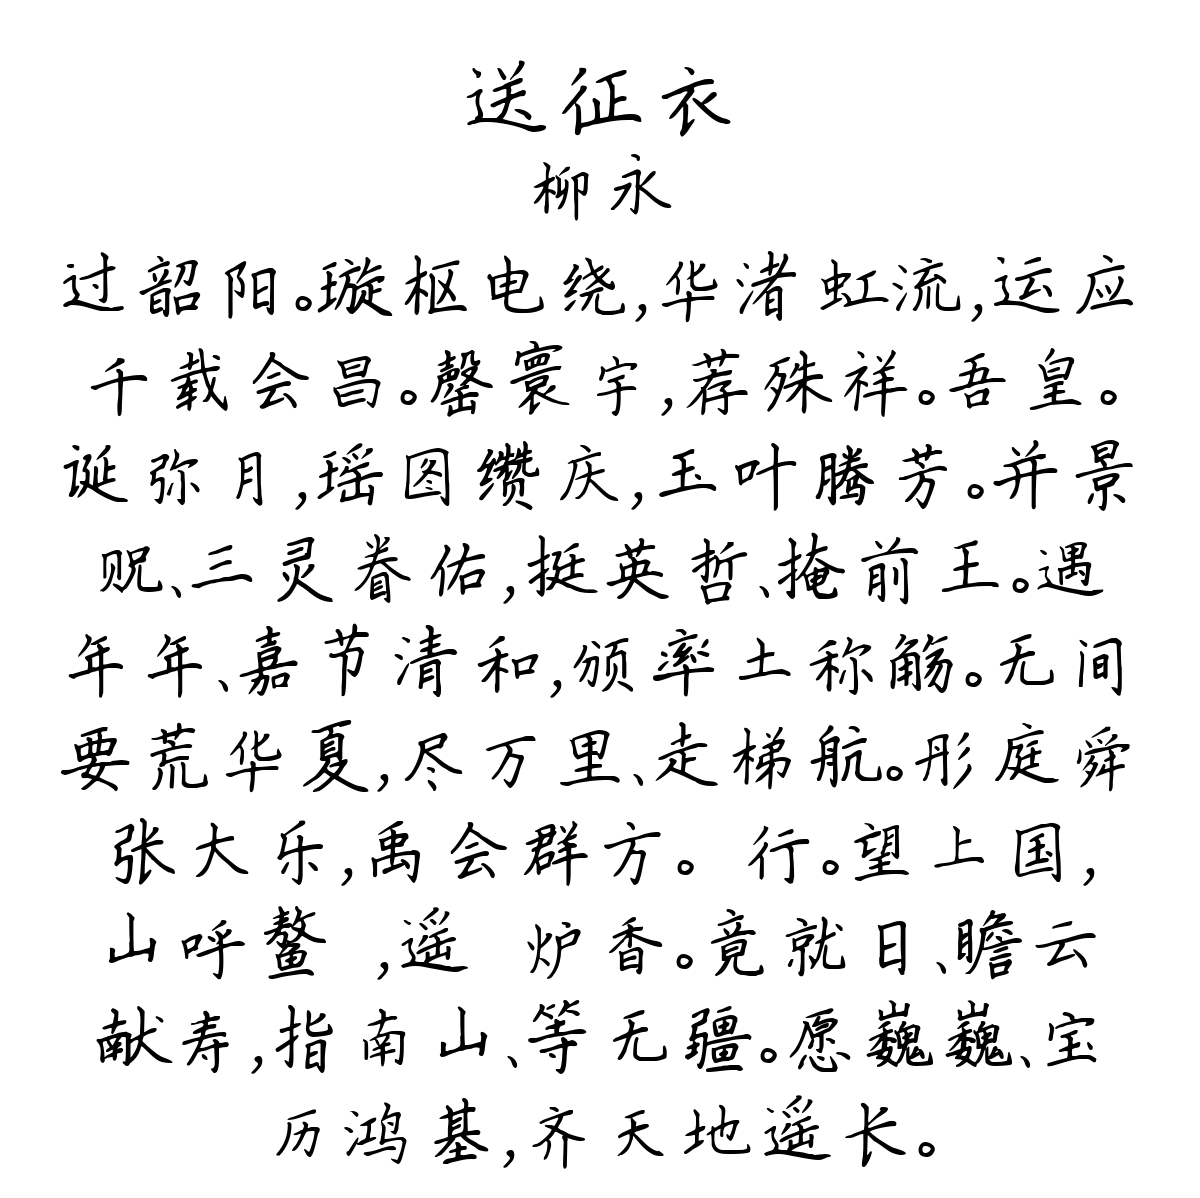 送征衣
柳永
过韶阳。璇枢电绕,华渚虹流,运应
千载会昌。罄寰宇,荐殊祥。吾皇。
诞弥月,瑶图缵庆,玉叶腾芳。并景
贶、三灵眷佑,挺英哲、掩前王。遇
年年、嘉节清和,颁率土称觞。无间
要荒华夏,尽万里、走梯航。彤庭舜
张大乐,禹会群方。 行。望上国,
山呼鳌 ,遥 炉香。竟就日、瞻云
献寿,指南山、等无疆。愿巍巍、宝
历鸿基,齐天地遥长。